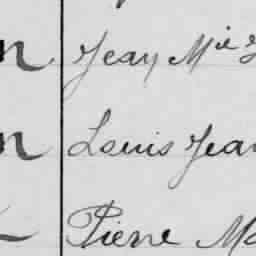 n Jean Mie
n Louis Jean
Pierre Ma